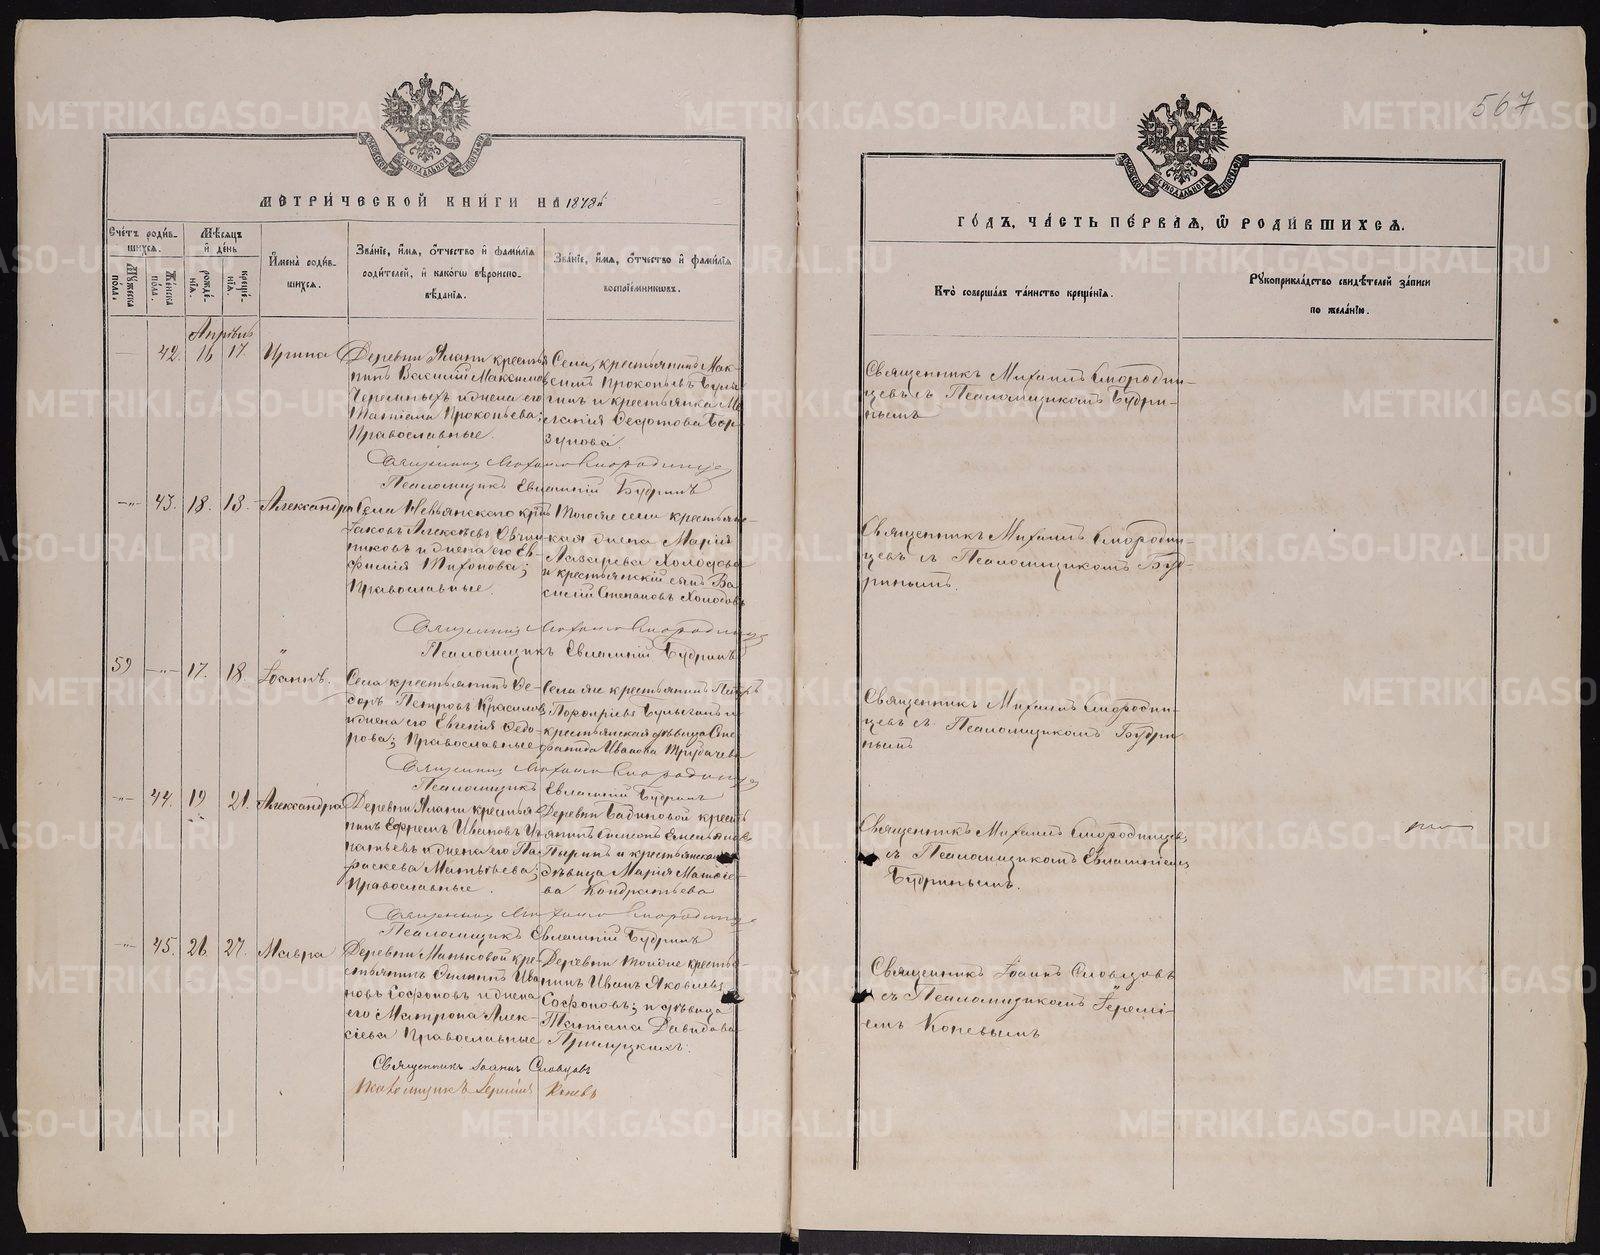 567
МЕТРИ́ЧЕСКОЙ КНИ́ГИ НА 1878й
ГО́ДЪ, ЧА́СТЬ ПЕ́РВАЯ, Ѡ РОДИ́ВШИХСЯ.
Сче́тъ роди́в-
шихся.
Мꙋ́жеска по́ла.
Же́нска по́ла.
Мѣ́сяцъ и де́нь
рожде́нія.
креще́нія.
Имена̀ роди́в-
шихся.
Зва́ніе, и́мя, о́тчество и фами́лія
роди́телей, и како́гѡ вѣроиспо-
вѣ́данія.
Зва́ніе, и́мя, о́тчество и фами́лія
воспріе́мниковъ.
Кто̀ соверша́лъ та́инство креще́нія.
Рꙋкоприкла́дство свидѣ́телей за́писи
по жела́нію.
Апрѣль
42. 16 17. Ирина
Деревни Ялани кресть-
нинъ Василій Максимов
Черемныхъ и жена его
Татіана Прокопьева;
Православные.
Села, крестьянинъ Мак-
симъ Прокопьевъ Булы-
гинъ и крестьянка Ме-
ланія Федотова Бор-
зунова.
Священникъ Михаилъ Смородин-
цевъ съ Псаломщикомъ Будри-
нымъ
Священникъ Михаилъ Смородинцевъ
Псаломщикъ Евлампій Будринъ
43. 18. 13. Александра
Села Невьянского кр.
Іаковъ Алексѣевъ Овчин-
никовъ и жена его Ев-
фимія Тихонова;
Православные.
Тогоже села крестьян-
ская жена Марія
Лазарева Холодова
и крестьянскій сынъ Ва-
силій Степановъ Холодовъ
Священникъ Михаилъ Смородин-
цевъ съ Псаломщикомъ Буд-
ринымъ.
Священникъ Михаилъ Смородинцевъ
Псаломщикъ Евлампій Будринъ
59 17. 18. Іоаннъ.
Села крестьянинъ Ѳе-
доръ Петровъ Красилов
и жена его Евгенія Ѳедо-
рова; Православные
Села же крестьянинъ Петръ
Порфирьевъ Булыгинъ и
крестьянская дѣвица Сте-
фанида Иванова Трубачева
Священникъ Михаилъ Смородин-
цевъ съ Псаломщикомъ Будри-
нымъ
Священникъ Михаилъ Смородинцевъ
Псаломщикъ Евлампій Будринъ
44. 19 21. Александра
Деревни Ялани крестья-
нинъ Ефремъ Ивановъ Иг-
натьевъ и жена его Па-
раскева Матѳѣева;
Православные.
Деревни Бадиновой крест-
янинъ Симеонъ Емельянов
Ширинъ и крестьянская
дѣвица Марія Матѳѣе-
ва Кондратьева
Священникъ Михаилъ Смородинцевъ,
съ Псаломщикомъ Евлампіемъ
Будринымъ.
Священникъ Михаилъ Смородинцевъ
Псаломщикъ Евлампій Будринъ
45. 26 27. Мавра
Деревни Маньковой кре-
стьянинъ Филиппъ Ива-
новъ Сосфоновъ и жена
его Матрона Алек-
сіева Православные
Деревни тойже крестья-
нинъ Иванъ Яковлевъ
Сосфоновъ; и дѣвица
Татіана Давидова
Прилуцкихъ.
Священникъ Іоаннъ Словцовъ
съ Псаломщикомъ Іереміе-
емъ Коневымъ
Священникъ Іоаннъ Словцовъ
Псаломщикъ Іеремія Коневъ